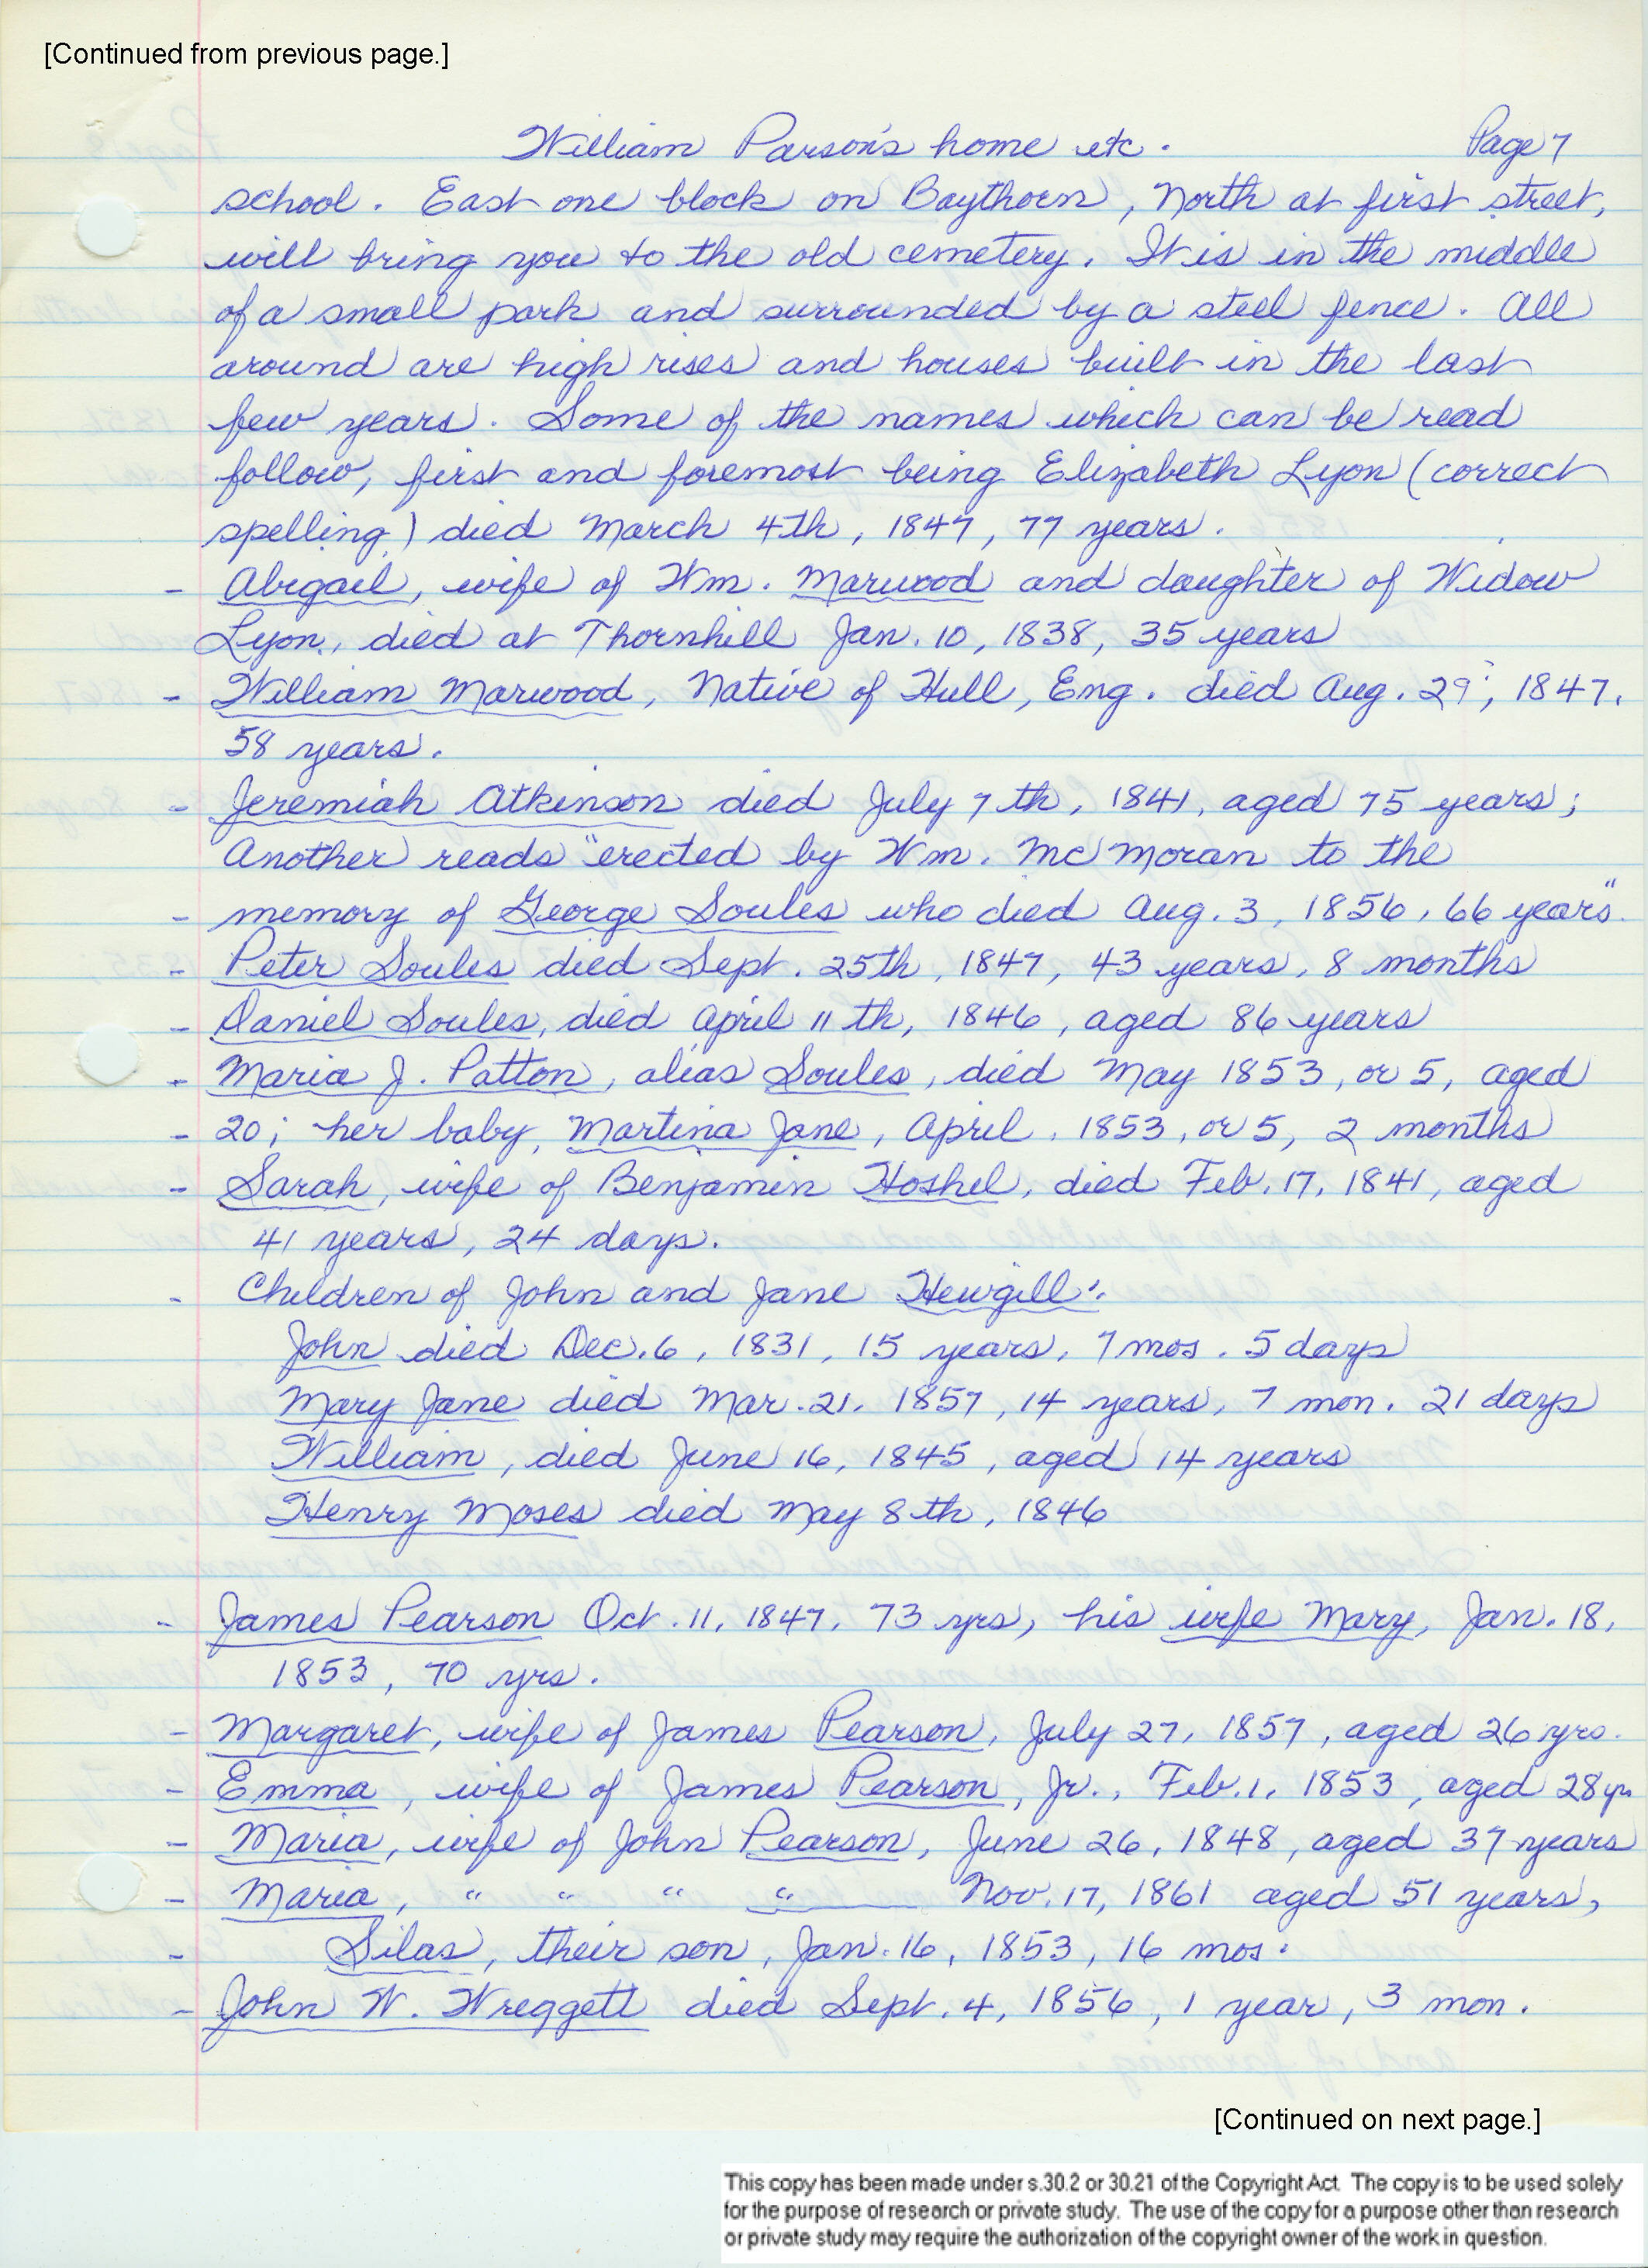 [Continued from previous page.]
William Parson's home etc. Page 7
school. East one block on Baythorn, North at first street,
will bring you to the old cemetery. It is in the middle
of a small park and surrounded by a steel fence. All
around are high rises and houses built in the last
few years. Some of the names which can be read
follow, first and foremost being Elizabeth Lyon (correct
spelling) died March 4th, 1847, 77 years.
- Abigail, wife of Wm. Marwood and daughter of Widow
Lyon, died at Thornhill Jan. 10, 1838, 35 years
- William Marwood, Native of Hull, Eng. died Aug. 29, 1847.
58 years.
- Jeremiah Atkinson died July 7th, 1841, aged 75 years;
Another reads "erected by Wm. McMoran to the
- memory of George Soules who died Aug. 3, 1856, 66 years".
- Peter Soules died Sept. 25th, 1847, 43 years, 8 months
- Daniel Soules, died April 11th, 1846, aged 86 years
- Maria J. Patton, alias Soules, died May 1853, or 5, aged
- 20; her baby, Martina Jane, April, 1853, or 5, 2 months
- Sarah, wife of Benjamin Hoshel, died Feb. 17, 1841, aged
41 years, 24 days.
- Children of John and Jane Hewgill:
John died Dec. 6, 1831, 15 years, 7 mos. 5 days
Mary Jane died Mar. 21, 1857, 14 years, 7 mon. 21 days
William, died June 16, 1845, aged 14 years
Henry Moses died May 8th, 1846
- James Pearson Oct. 11, 1847, 73 yrs, his wife Mary, Jan. 18,
1853, 70 yrs.
- Margaret, wife of James Pearson, July 27, 1857, aged 26 yrs.
- Emma, wife of James Pearson, Jr., Feb. 1, 1853, aged 28 yrs
- Maria, wife of John Pearson, June 26, 1848, aged 37 years
- Maria, " " " " Nov. 17, 1861 aged 51 years,
- Silas, their son, Jan. 16, 1853, 16 mos.
- John W. Wreggett died Sept. 4, 1856, 1 year, 3 mon.
[Continued on next page.]
This copy has been made under s.30.2 or 30.21 of the Copyright Act. The copy is to be used solely
for the purpose of research or private study. The use of the copy for a purpose other than research
or private study may require the authorization of the copyright owner of the work in question.